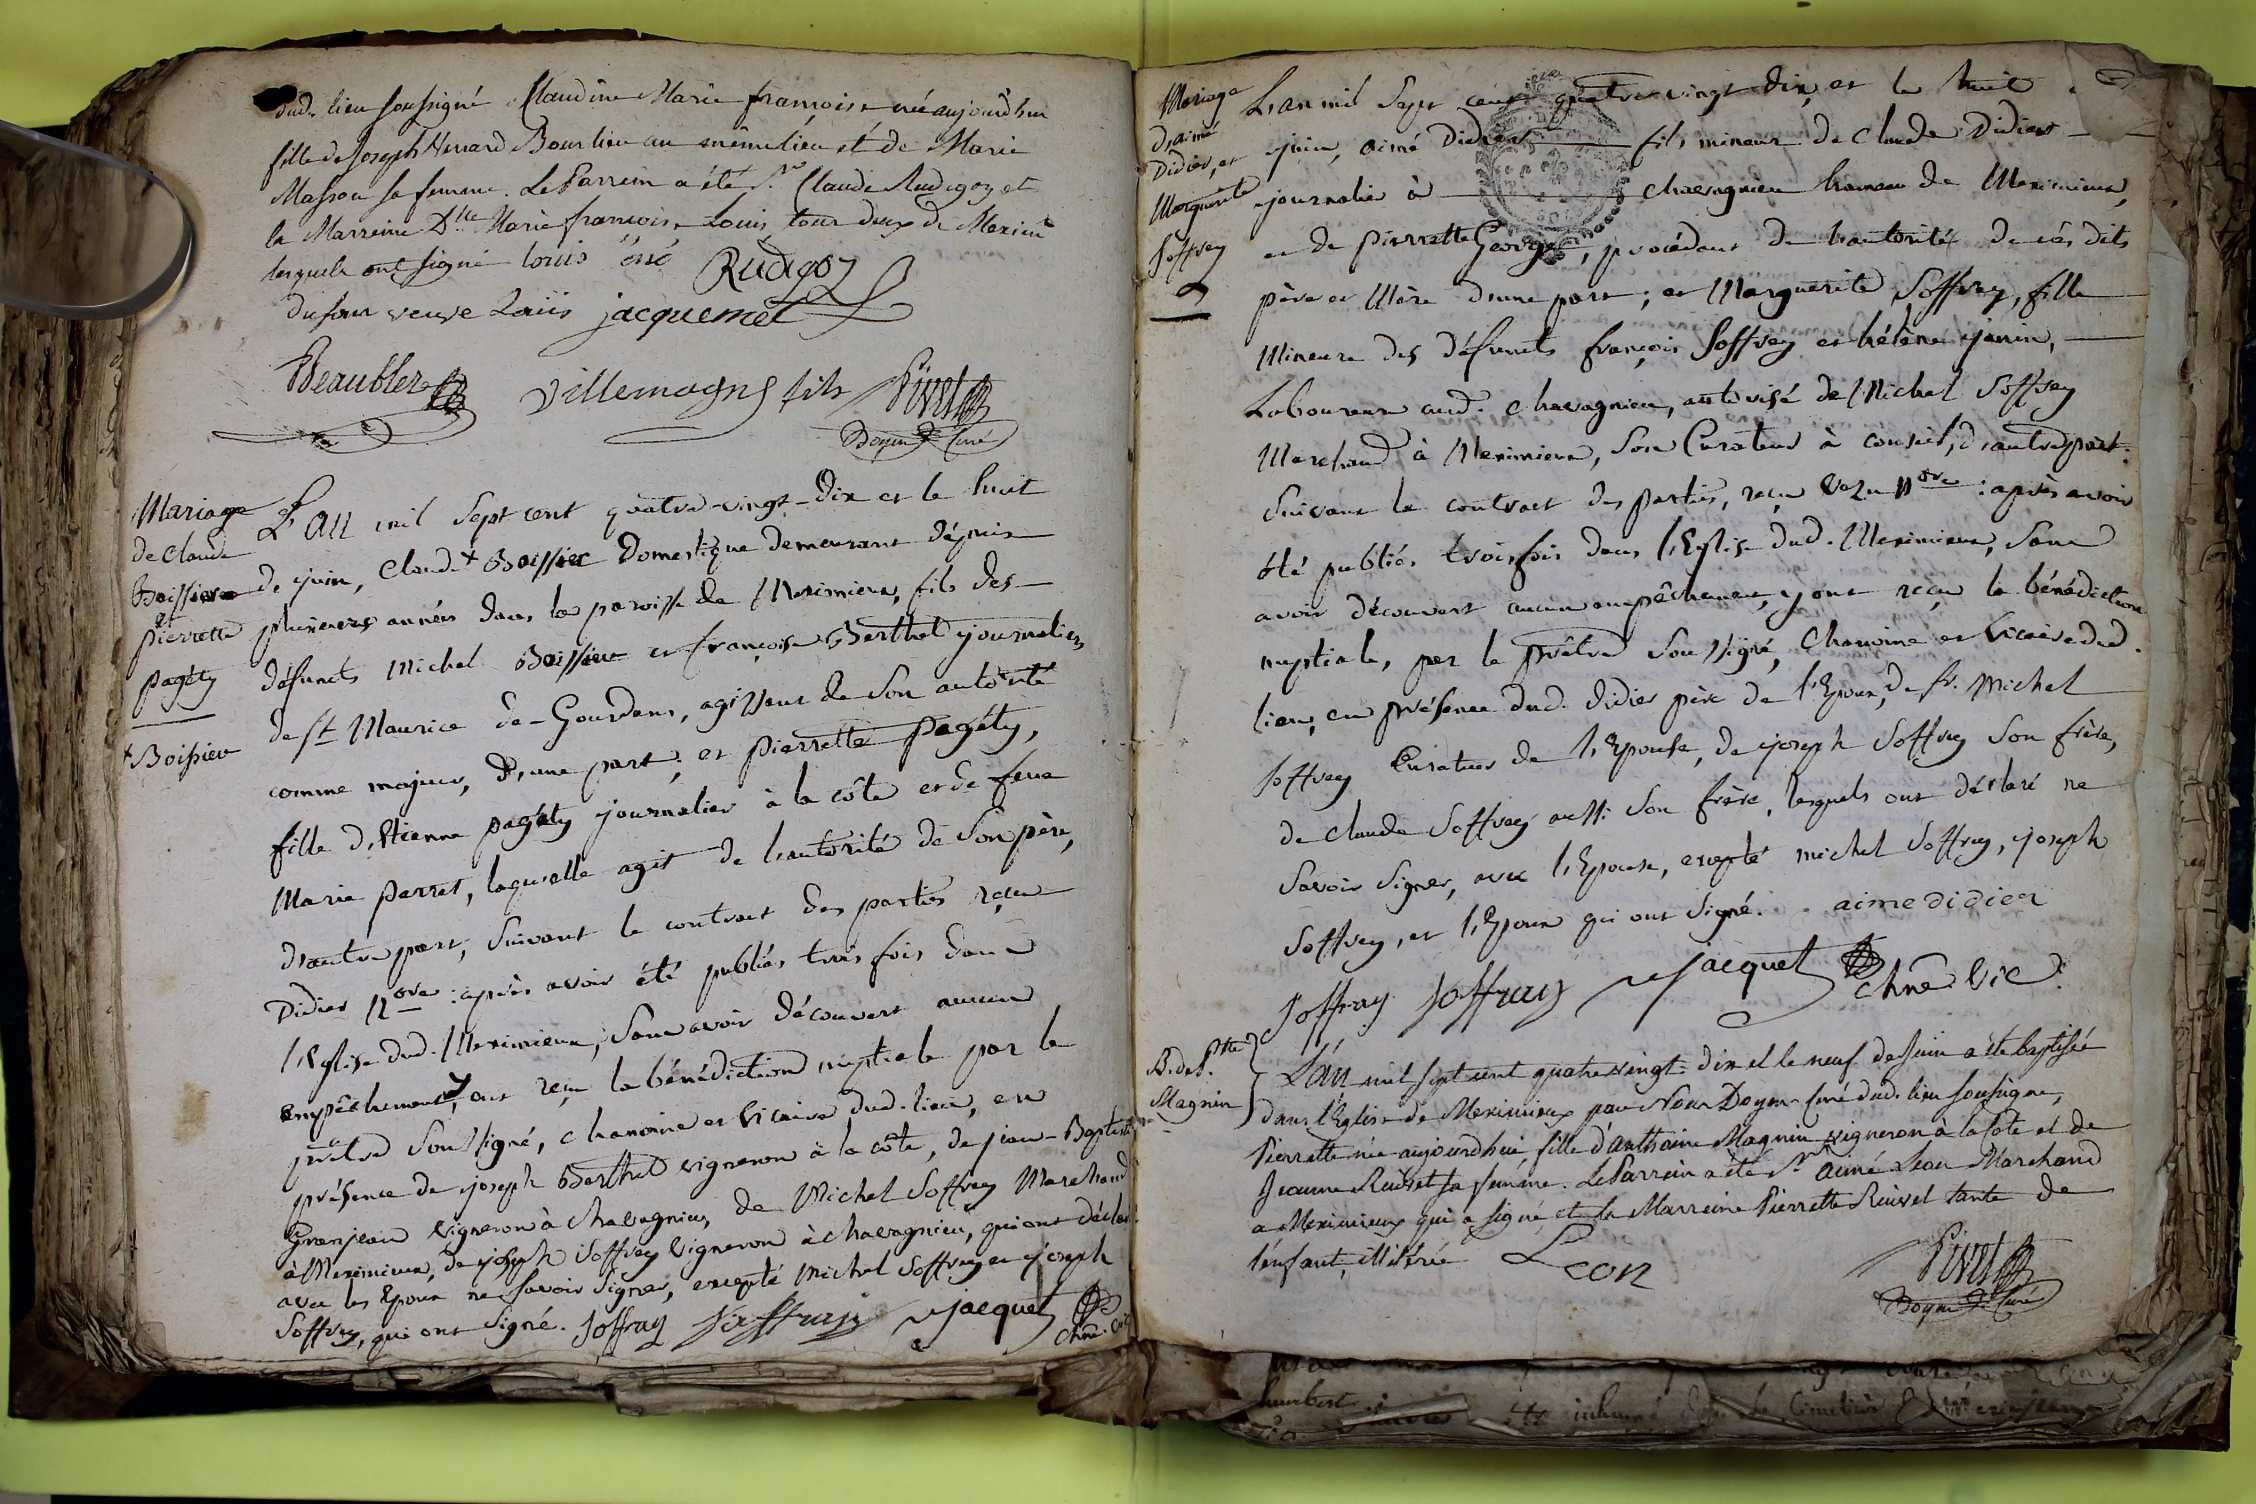 dud. lieu soussigné Claudine Marie françoise née aujourd'hui
fille de Joseph Bourlier au même lieu et de Marie
Masson sa femme. Le Parrein a été Sr. Claude Rudigoz et
la Marreine Dlle Marie françoise Louis tous deux de Meximieux
lesquels ont signé louis Rudigoz
dufour veuve Louis jacquemet
Beaublez Villemagne fils Pivet
Doyen & Curé
Mariage
de Claude
Boissieu
et
pierrette
pagéty
+ Boissieu
L'an mil sept cent quatre-vingt-dix et le huit
de juin, Claude + Boissieu Domestique demeurant dépuis
plusieurs années dans la paroisse de Meximieux, fils des
défunts Michel Boissieu et françoise Berthet journaliers
de st Maurice de-Gourdans, agissant de son autorité
comme majeur, d'une part; et pierrette pagéty,
fille d'Etienne pagéty journalier à la côte et de feue
Marie perret, laquelle agit de l'autorité de son père,
d'autre part, suivant le contract des parties reçu
Didier nore: après avoir été publiés trois fois dans
l'Eglise dud. Meximieux, sans avoir découvert aucun
empêchement, ont reçu la bénédiction nuptiale par le
prêtre soussigné, chanoine et vicaire dud. lieu, en
présence de joseph Berthet vigneron à la côte, de jean-Baptiste
Granjean vigneron à chavagnieu, de Michel Soffrey Marchand
à Meximieux, de joseph Soffrey vigneron à chavagnieu, qui ont déclaré
avec les Epoux ne savoir signer, excepté Michel Soffrey et joseph
Soffrey, qui ont signé. Soffray Soffray jacquet
chne. vic
Mariage
d'aimé
Didier, et
Marguerite
Soffrey
L'an mil sept cent quatre vingt dix, et le huit
juin, aimé Didier fils mineur de Claude Didier
journalier à chavagnieu hameau de Meximieux,
et de pierrette George, procédant de l'autorité de ces dits
père et Mère d'une part; et Marguerite Soffrey, fille
Mineure des défunts françois Soffrey et hélène janin,
Laboureur aud. chavagnieu, autorisé de Michel Soffrey
Marchand à Meximieux, son Curateur à conseil, d'autre part.
Suivant le contract des parties, reçu nore: après avoir
été publiés trois fois dans l'Eglise dud. Meximieux, sans
avoir découvert aucun empêchement, y ont reçu la bénédiction
nuptiale, par le prêtre soussigné, Chanoine et Vicaire dud.
lieu, en présence dud. Didier père de l'Epoux, de sr. Michel
Soffrey Curateur de l'Epouse, de joseph Soffrey son frère,
de Claude Soffrey aussi son frère, lesquels ont déclaré ne
savoir signer, avec l'Epouse, excepté michel Soffrey, joseph
Soffrey, et l'Epoux qui ont signé. aime didier
Soffray Soffray jacquet
chne. vic.
B. de Ptte
Magnin
L'an mil sept cent quatre vingt-dix et le neuf de Juin a été baptisée
dans l'Eglise de Meximieux par Nous Doyen-Curé dud. lieu soussigné,
Pierrette née aujourd'hui fille d'anthoine Magnin vigneron à la Cote et de
Jeanne Ruivet sa femme. Le Parrein a été Sr aimé Léon Marchand
a Meximieux qui a signé et la Marreine Pierrette Ruivet tante de
l'enfant, illitérée Leon
Pivet
Doyen & Curé